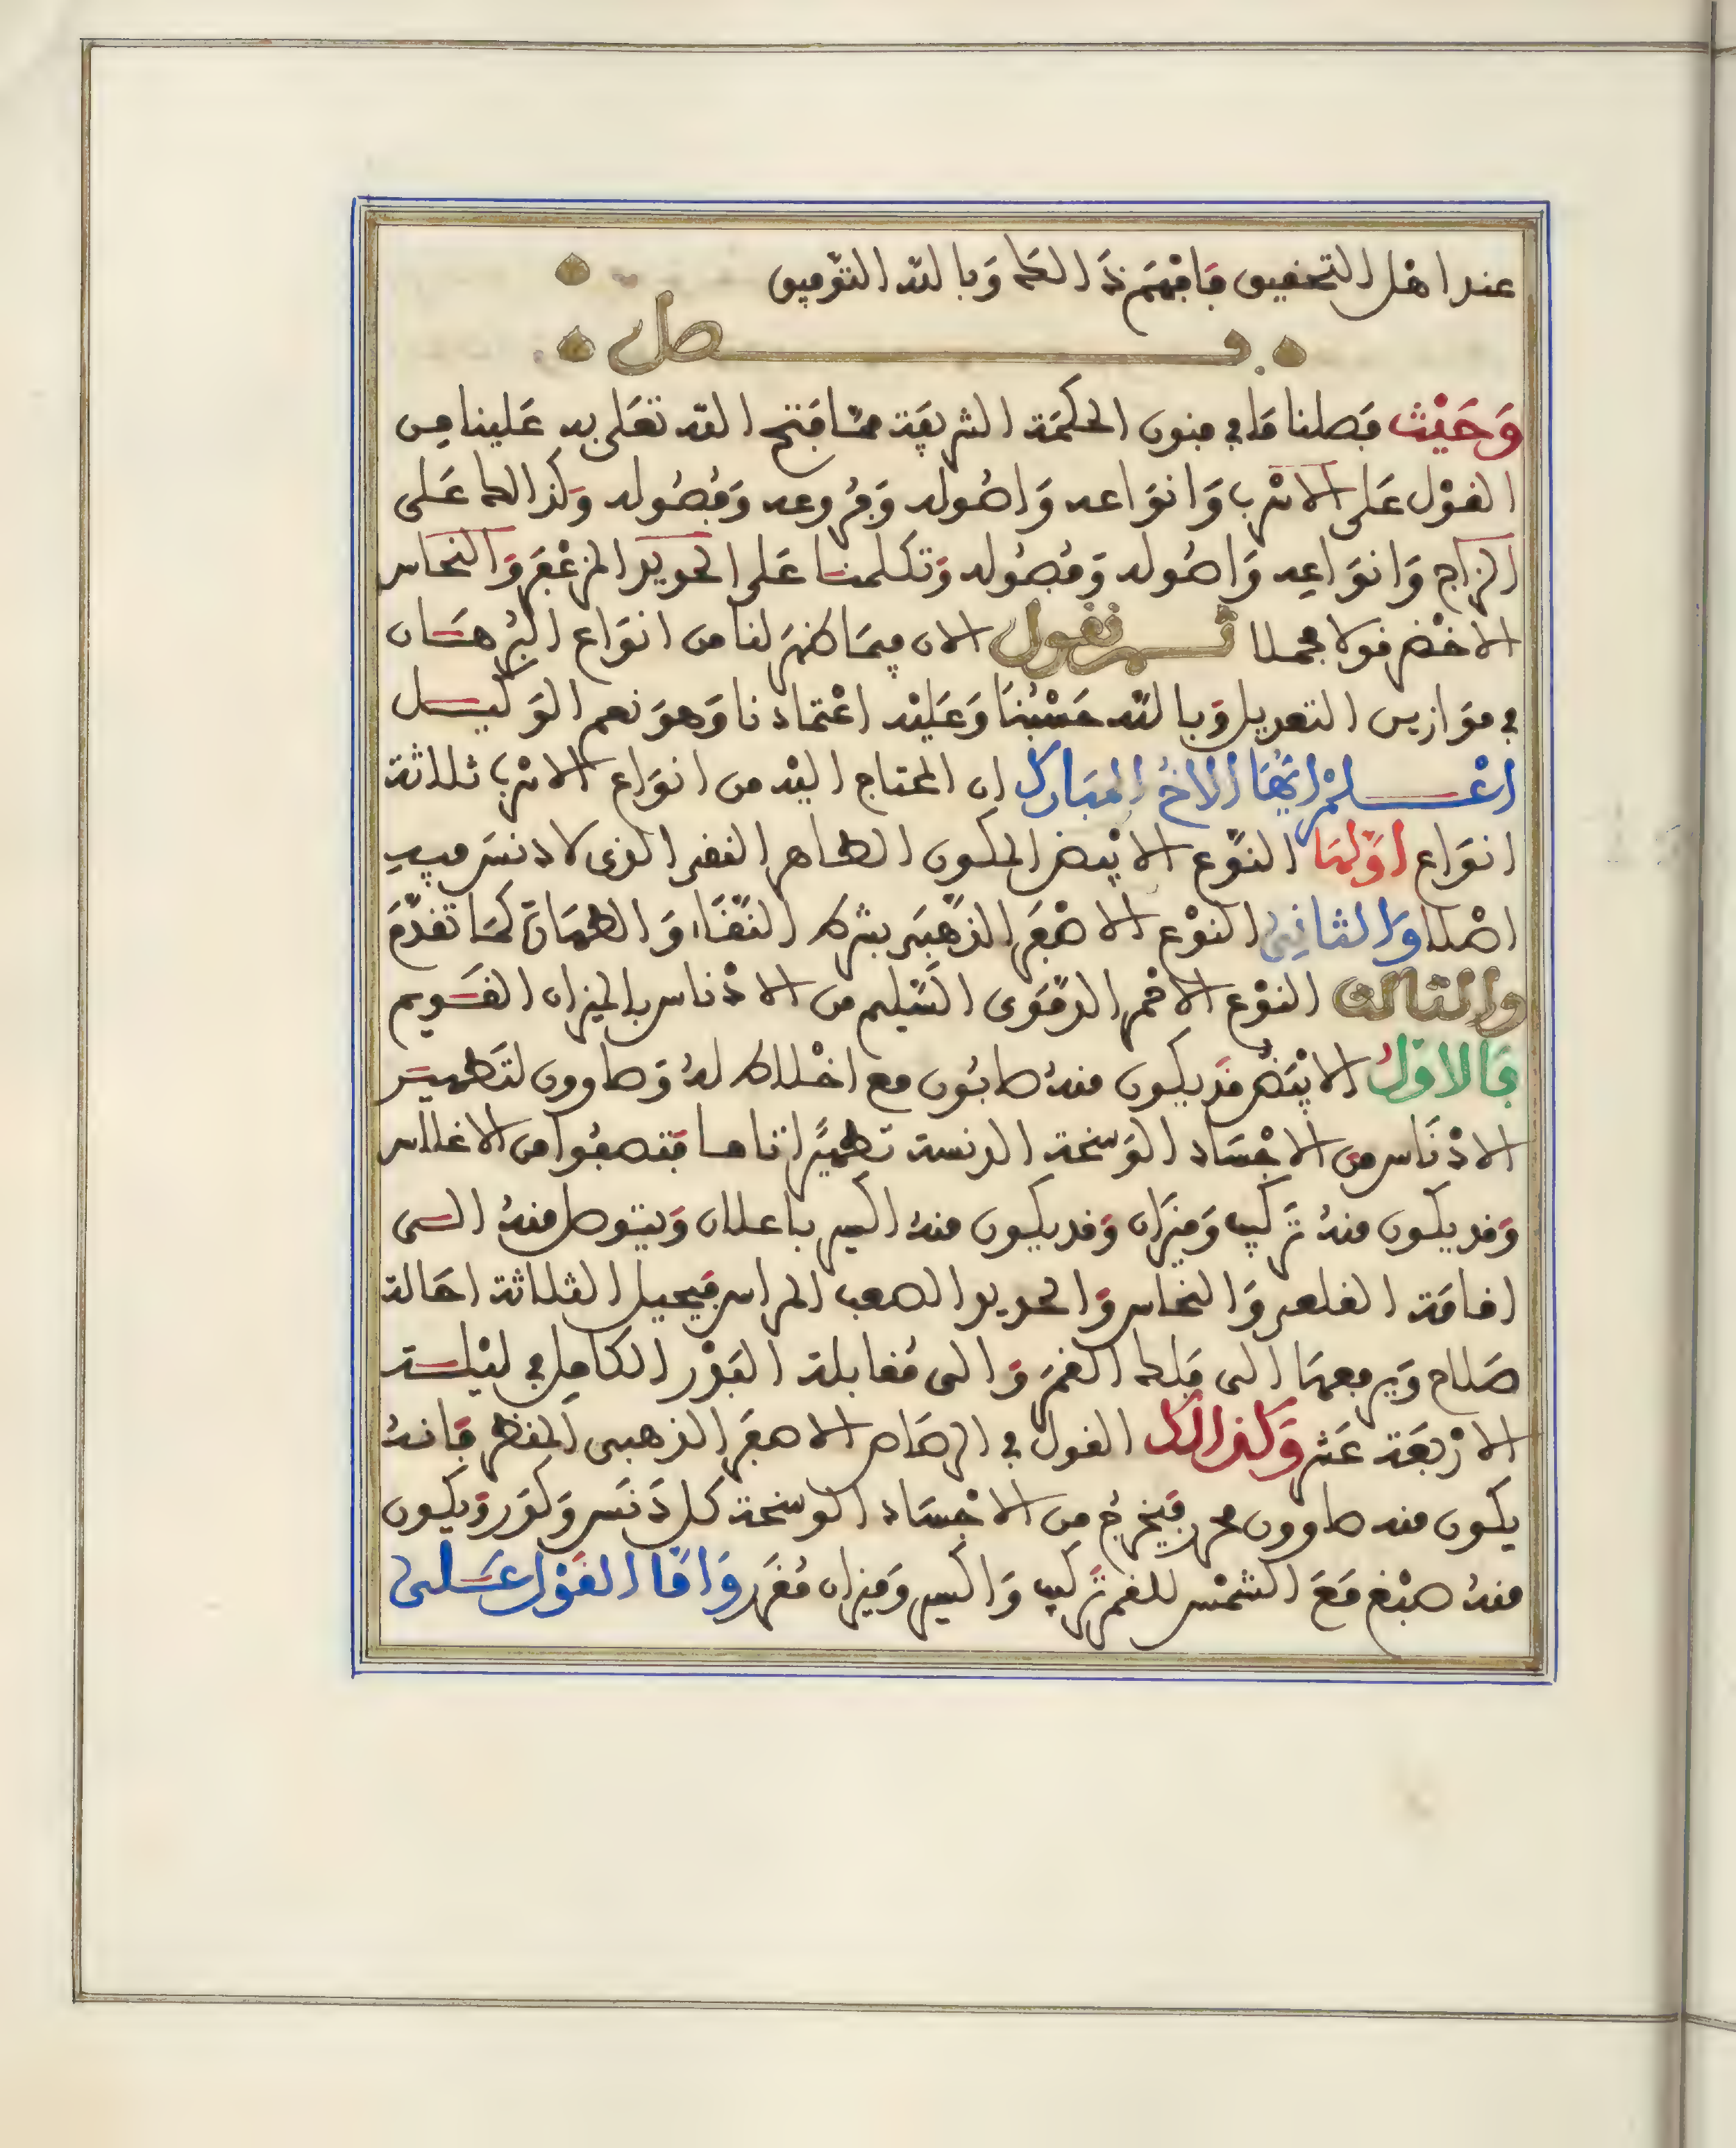 عند اهل التحقيق فافهم ذالك وبالله التوفيق
فصل
وحيث فصلنا ما في فنون الحكمة الشريفة مما فتح الله تعلى به علينا من
القول على الاسرب وانواعه واصوله وفروعه وفصوله وكذالك على
الزاج وانواعه واصوله وفصوله وتكلمنا على الحديد المزعفر والنحاس
الاخضر قولا مجملا ثم نقول الان فيما ظهر لنا من انواع البرهان
في موازين التعديل وبالله حسبنا وعليه اعتمادنا وهو نعم الوكيل
اعلم ايها الاخ المبارك ان المحتاج اليه من انواع الاسرب ثلاثة
انواع اولها النوع الابيض المكون الطاهر النقي الذي لا دنس فيه
اصلا والثاني النوع الاصفر الذهبي بشرط النقاء والطهارة كما تقدم
والثالث النوع الاحمر الدموى السليم من الادناس بالميزان القويم
فالاول الابيض قد يكون منه صابون مع اخلاط له وصاوون لتطهير
الادناس من الاجساد الوسخة الدنسة تطهيرا تاما فتصفوا من الاغلاس
وقد يكون منه تركيب وميزان وقد يكون منه اكسير باعلان ويتوصل منه الى
اقامة القلعي والنحاس والحديد الصعب المراس فيحيل الثلاثة احالة
صلاح ويرفعها الى فلك القمر والى مقابلة البدر الكامل في ليلة
الاربعة عشر وكذالك القول في الرصاص الاصفر الذهبى المقطر فانه
يكون منه صاوون محمر فيخرج من الاجساد الوسخة كل دنس وكدر ويكون
منه صبغ مع الشمس للقمر تركيب واكسير وميزان مقرر واما القول على